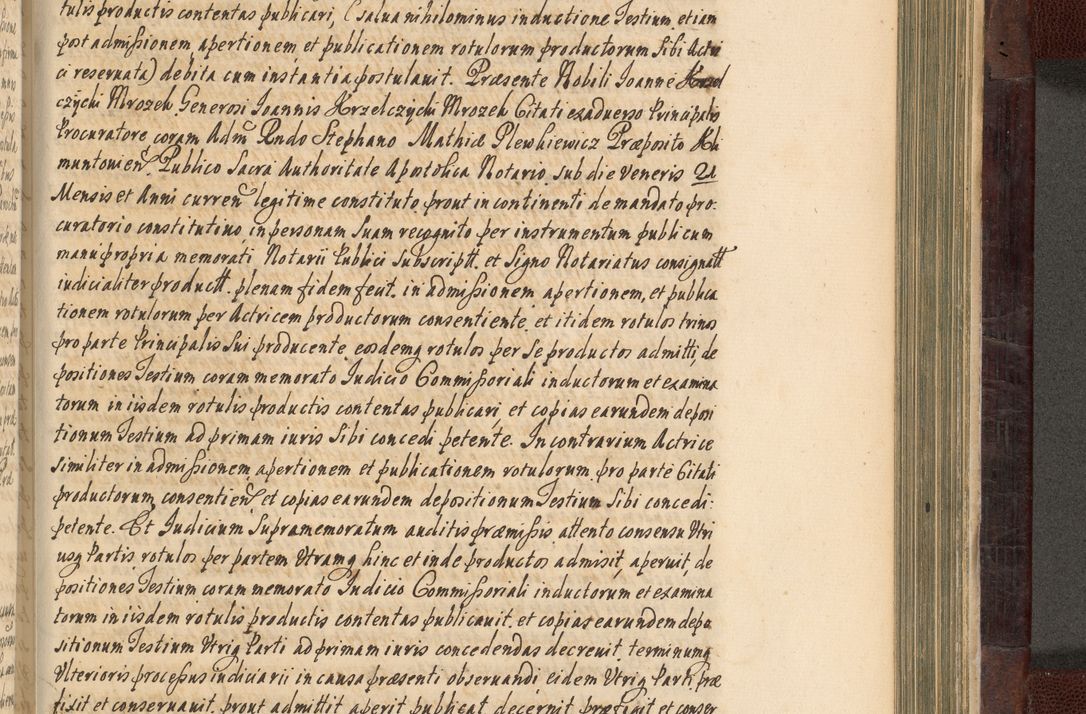 tulis productis contentas publicari, (salua nihilominus inductione Testium etiam
post admissionem, apertionem et publicationem rotulorum productorum Sibi Actri
ci reseruata) debita cum instantia postulauit. Præsente Nobili Joanne Krzel
czycki Mrozek Generosi Joannis Krzelczycki Mrozek Citati ex aduerso Principalis
Procuratore, coram Adm Rndo Stephano Mathia Plewkiewicz Præposito Kli
muntouien Publico Sacra Authoritate Apostolica Notario sub die Veneris 21
Mensis et Anni curren legitime constituto prout in continenti de mandato pro:
curatorio constitutiuo in personam Suam recognito per instrumentum publicum
manu propria memorati Notarii Publici Subscriptt. et Signo Notariatus consignatt
iudicialiter productt. plenam fidem fecit. in admissionem apertionem, et publica
tionem rotulorum per Actricem productorum consentiente et itidem rotulos trinos
pro parte Principalis Sui producente, eosdemq rotulos per Se productos admitti, de
positiones Testium coram memorato Judicio Commissoriali inductorum et examina
torum in iisdem rotulis productis contentas publicari, et copias earundem deposi
tionum Testium ad primam iuris Sibi concedi petente. In contrarium Actrice
similiter in admissionem apertionem et publicationem rotulorum pro parte Citati
productorum, consentien et copias earundem depositionum Testium Sibi concedi:
petente. Et Judicium Supramemoratum auditis præmissis, attento consensu Utri
usq Partis, rotulos per partem Utramq hinc et inde productos admisit, aperuit, de
positiones Testium coram memorato Judicio Commissoriali inductorum et examina
torum in iisdem rotulis productis contentas publicauit, et copias earundem depo
sitionum Testium Utriq Parti ad primam iuris concedendas decreuit, terminumq
Ulterioris processus iudiciarii in causa præsenti obseruandi, eidem Utriq Parti præ
fixit et conseruauit, prout admittit aperit publicat decernit præfigit et conser